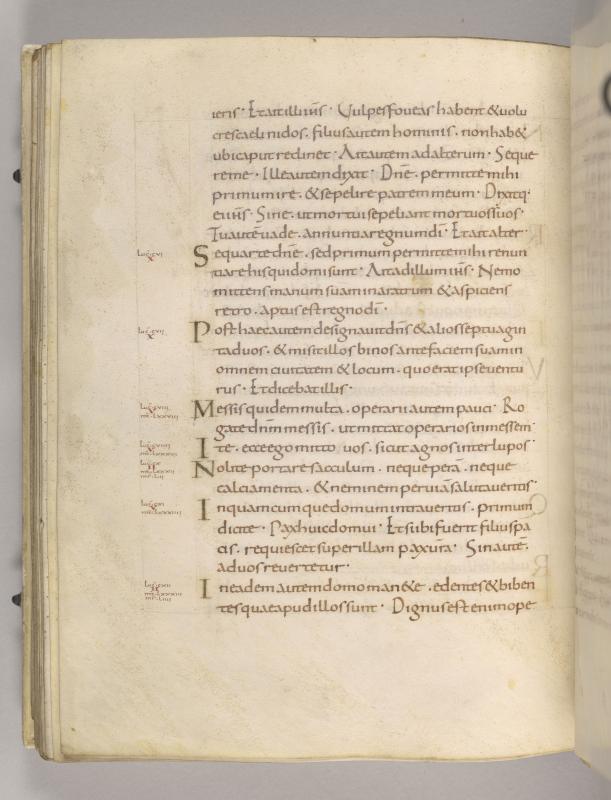 ieris · Et ait illi ihs · Vulpes foveas habent & volu
cres caeli nidos · filius autem hominis · non hab&
ubi caput reclinet · Ait autem ad alterum · Seque
re me · Ille autem dixit · Dne · permitte mihi
primum ire · & sepelire patrem meum · Dixitq;
ei ihs · Sine · ut mortui sepeliant mortuos suos ·
Tu autem vade · annuntia regnum di · Et ait alter ·
Sequar te dne · sed primum permitte mihi renun
tiare his qui domi sunt · Ait ad illum ihs · Nemo
mittens manum suam in aratrum & aspiciens
retro · aptus est regno di ·
Post haec autem designavit dns & alios septuagin
ta duos · & misit illos binos ante faciem suam in
omnem civitatem & locum · quo erat ipse ventu
rus · Et dicebat illis ·
Messis quidem multa · operarii autem pauci · Ro
gate dnm messis · ut mittat operarios in messem
Ite · ecce ego mitto vos · sicut agnos inter lupos ·
Nolite portare sacculum · neque pera · neque
calciamenta · & neminem per viam salutaveritis ·
In quamcumque domum intraveritis · primum
dicite · Pax huic domui · Et si ibi fuerit filius pa
cis · requiescet super illam pax vra · Sin aute ·
ad vos revertetur ·
In eadem autem domo man&e · edentes & biben
tes quae apud illos sunt · Dignus est enim ope